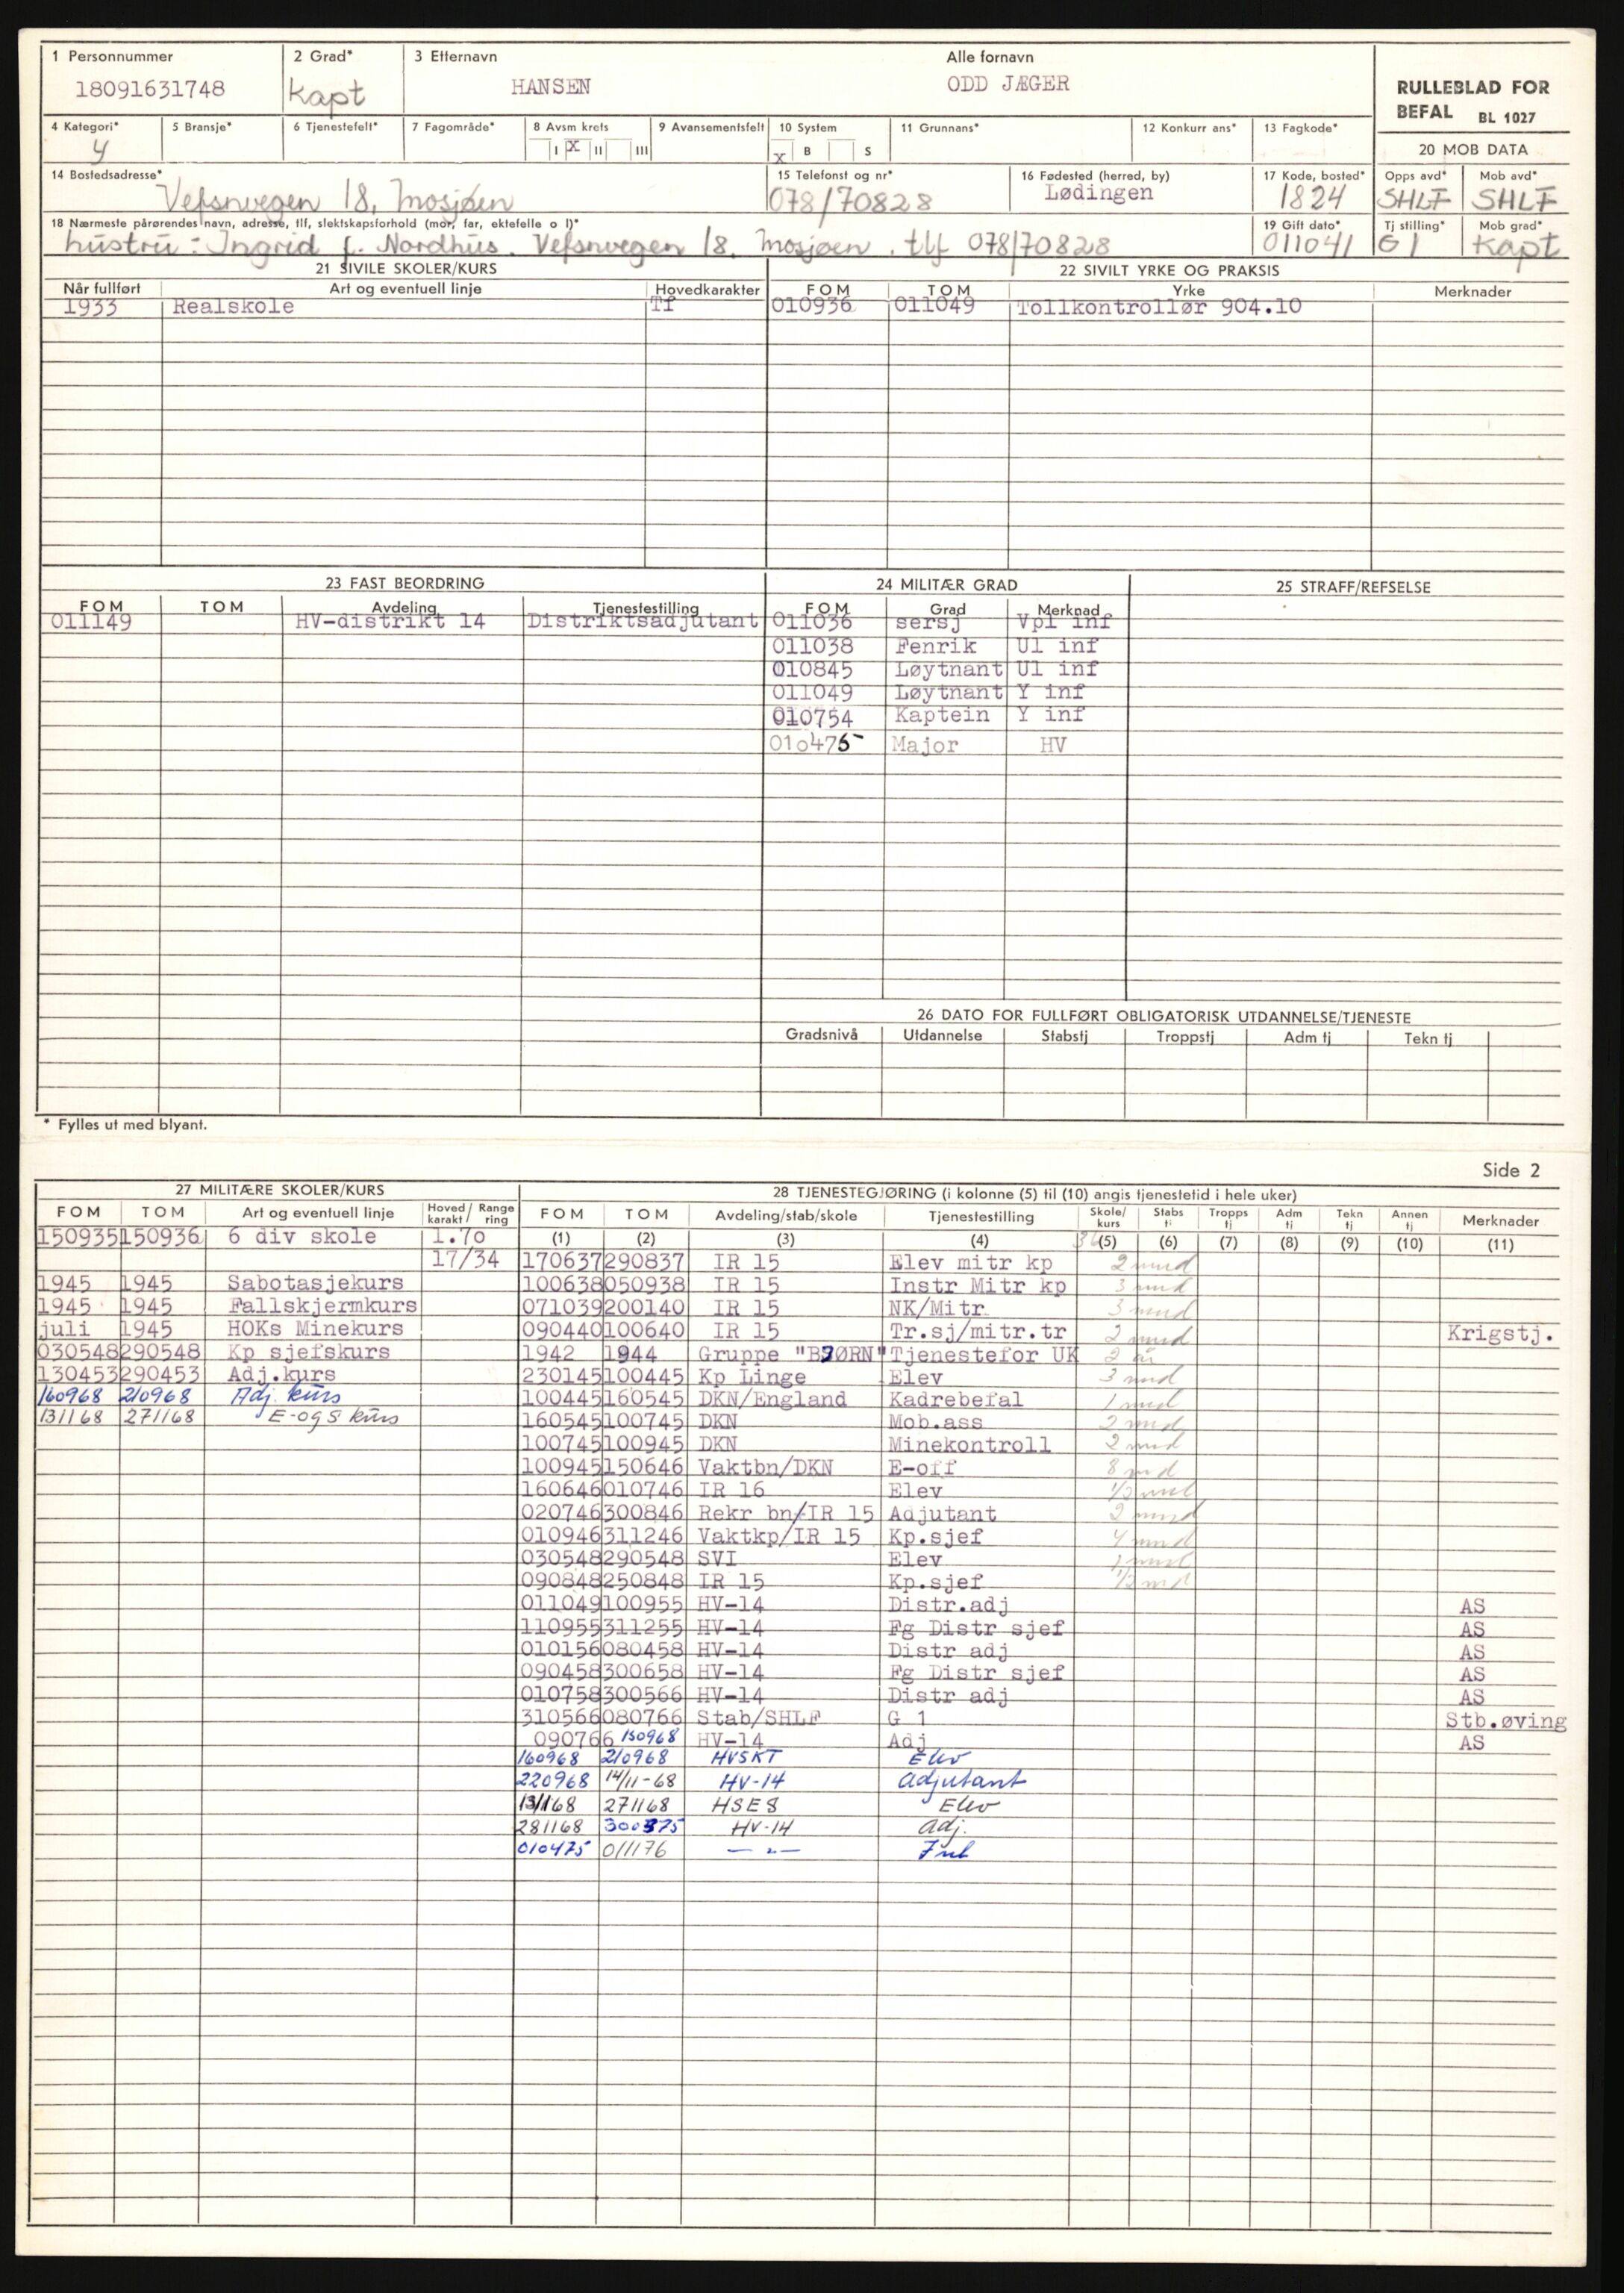 1 Personnummer 2 Grad* 3 Etternavn Alle fornavn
18091631748 Kapt HANSEN ODD JÆGER
RULLEBLAD FOR
BEFAL BL 1027
4 Kategori* 5 Bransje* 6 Tjenestefelt* 7 Fagområde* 8 Avsm krets 9 Avansementsfelt 10 System 11 Grunnans* 12 Konkurr ans* 13 Fagkode*
Y I X II III X B S
20 MOB DATA
14 Bostedsadresse* 15 Telefonst og nr* 16 Fødested (herred, by) 17 Kode, bosted* Opps avd* Mob avd*
Vefsnvegen 18, Mosjøen 078/70828 Lødingen 1824 SHLF SHLF
18 Nærmeste pårørendes navn, adresse, tlf, slektskapsforhold (mor, far, ektefelle o l)* 19 Gift dato* Tj stilling* Mob grad*
hustru: Ingrid f. Nordhus. Vefsnvegen 18. Mosjøen. tlf 078/70828 011041 G1 Kapt
21 SIVILE SKOLER/KURS 22 SIVILT YRKE OG PRAKSIS
Når fullført Art og eventuell linje Hovedkarakter FOM TOM Yrke Merknader
1933 Realskole Tf 010936 011049 Tollkontrollør 904.10
23 FAST BEORDRING 24 MILITÆR GRAD 25 STRAFF/REFSELSE
FOM TOM Avdeling Tjenestestilling FOM Grad Merknad
011149 HV-distrikt 14 Distriktsadjutant 011036 sersj Vpl inf
011038 Fenrik Ul inf
010845 Løytnant Ul inf
011049 Løytnant Y inf
010754 Kaptein Y inf
010475 Major HV
26 DATO FOR FULLFØRT OBLIGATORISK UTDANNELSE/TJENESTE
Gradsnivå Utdannelse Stabstj Troppstj Adm tj Tekn tj
* Fylles ut med blyant.
Side 2
27 MILITÆRE SKOLER/KURS 28 TJENESTEGJØRING (i kolonne (5) til (10) angis tjenestetid i hele uker)
FOM TOM Art og eventuell linje Hoved/karakt Rangering FOM TOM Avdeling/stab/skole Tjenestestilling Skole/kurs Stabs tj Tropps tj Adm tj Tekn tj Annen tj Merknader
150935 150936 6 div skole 1.70 (1) (2) (3) (4) (5) (6) (7) (8) (9) (10) (11)
17/34 170637 290837 IR 15 Elev mitr kp 2 mnd
1945 1945 Sabotasjekurs 100638 050938 IR 15 Instr Mitr kp 3 mnd
1945 1945 Fallskjermkurs 071039 200140 IR 15 NK/Mitr 3 mnd
juli 1945 HOKs Minekurs 090440 100640 IR 15 Tr.sj/mitr.tr 2 mnd Krigstj.
030548 290548 Kp sjefskurs 1942 1944 Gruppe "BJØRN" Tjenestefor UK 2 år
130453 290453 Adj.kurs 230145 100445 Kp Linge Elev 3 mnd
160968 210968 Adj. kurs 100445 160545 DKN/England Kadrebefal 1 mnd
131168 271168 E-og S kurs 160545 100745 DKN Mob.ass 2 mnd
100745 100945 DKN Minekontroll 2 mnd
100945 150646 Vaktbn/DKN E-off 8 md
160646 010746 IR 16 Elev 1/2 mnd
020746 300846 Rekr bn/IR 15 Adjutant 2 mnd
010946 311246 Vaktkp/IR 15 Kp.sjef 4 mnd
030548 290548 SVI Elev 1 mnd
090848 250848 IR 15 Kp.sjef 1/2 md
011049 100955 HV-14 Distr.adj AS
110955 311255 HV-14 Fg Distr sjef AS
010156 080458 HV-14 Distr adj AS
090458 300658 HV-14 Fg Distr sjef AS
010758 300566 HV-14 Distr adj AS
310566 080766 Stab/SHLF G 1 Stb.øving
090766 150968 HV-14 Adj AS
160968 210968 HVSKT Elev
220968 14/11-68 HV-14 Adjutant
131168 271168 HSES Elev
281168 300375 HV-14 Adj.
010475 011176 — " —